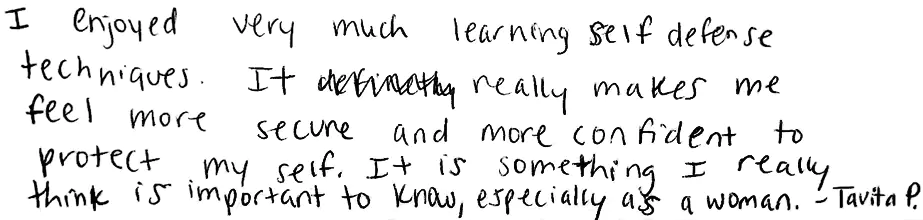 I enjoyed very much learning self defense
techniques. It really makes me
feel more secure and more confident to
protect my self. It is something I really
think is important to know, especially as a woman. - Tavita P.